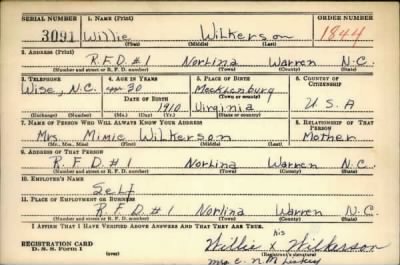 SERIAL NUMBER 1. NAME (Print) ORDER NUMBER
3091 Willie Wilkerson 1844
(First) (Middle) (Last)
2. ADDRESS (Print)
R.F.D. #1 Norlina Warren N.C.
(Number and street or R. F. D. number) (Town) (County) (State)
3. TELEPHONE 4. AGE IN YEARS 5. PLACE OF BIRTH 6. COUNTRY OF CITIZENSHIP
Wise, N.C. 30 Mecklenburg
DATE OF BIRTH (Town or county)
1910 Virginia U S A
(Exchange) (Number) (Mo.) (Day) (Yr.) (State or country)
7. NAME OF PERSON WHO WILL ALWAYS KNOW YOUR ADDRESS 8. RELATIONSHIP OF THAT PERSON
Mrs. Mimie Wilkerson Mother
(Mr., Mrs., Miss) (First) (Middle) (Last)
9. ADDRESS OF THAT PERSON
R.F.D. #1 Norlina Warren N.C.
(Number and street or R. F. D. number) (Town) (County) (State)
10. EMPLOYER'S NAME
Self
11. PLACE OF EMPLOYMENT OR BUSINESS
R.F.D. #1 Norlina Warren N.C.
(Number and street or R. F. D. number) (Town) (County) (State)
I AFFIRM THAT I HAVE VERIFIED ABOVE ANSWERS AND THAT THEY ARE TRUE.
his
REGISTRATION CARD Willie x Wilkerson
D. S. S. Form 1 (over) (Registrant's signature)
Mrs. C. N.